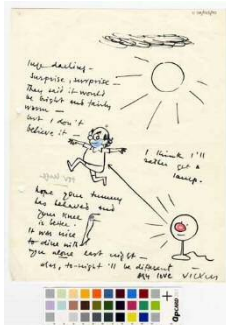 Inge darling -
surprise, surprise -
They said it would
be bright and fairly
warm -
but I don't
believe it -
I think I'll
rather get a
lamp.
hope your tummy
has behaved and
your knee
is better.
It was nice
to dine with
you alone last night -
alas, to-night 'll be different -
love VICKY